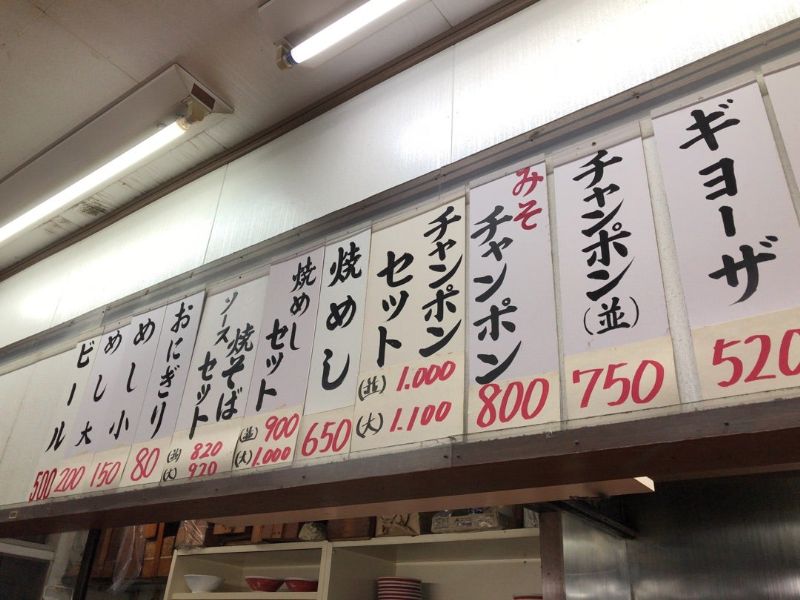 ギョーザ
520
チャンポン(並)
750
みそ
チャンポン
800
チャンポン
セット
(並) 1.000
(大) 1.100
焼めし
650
焼めし
セット
(並) 900
(大) 1.000
焼そば
ソース セット
(並) 820
(大) 920
おにぎり
80
めし小
150
めし大
200
ビール
500